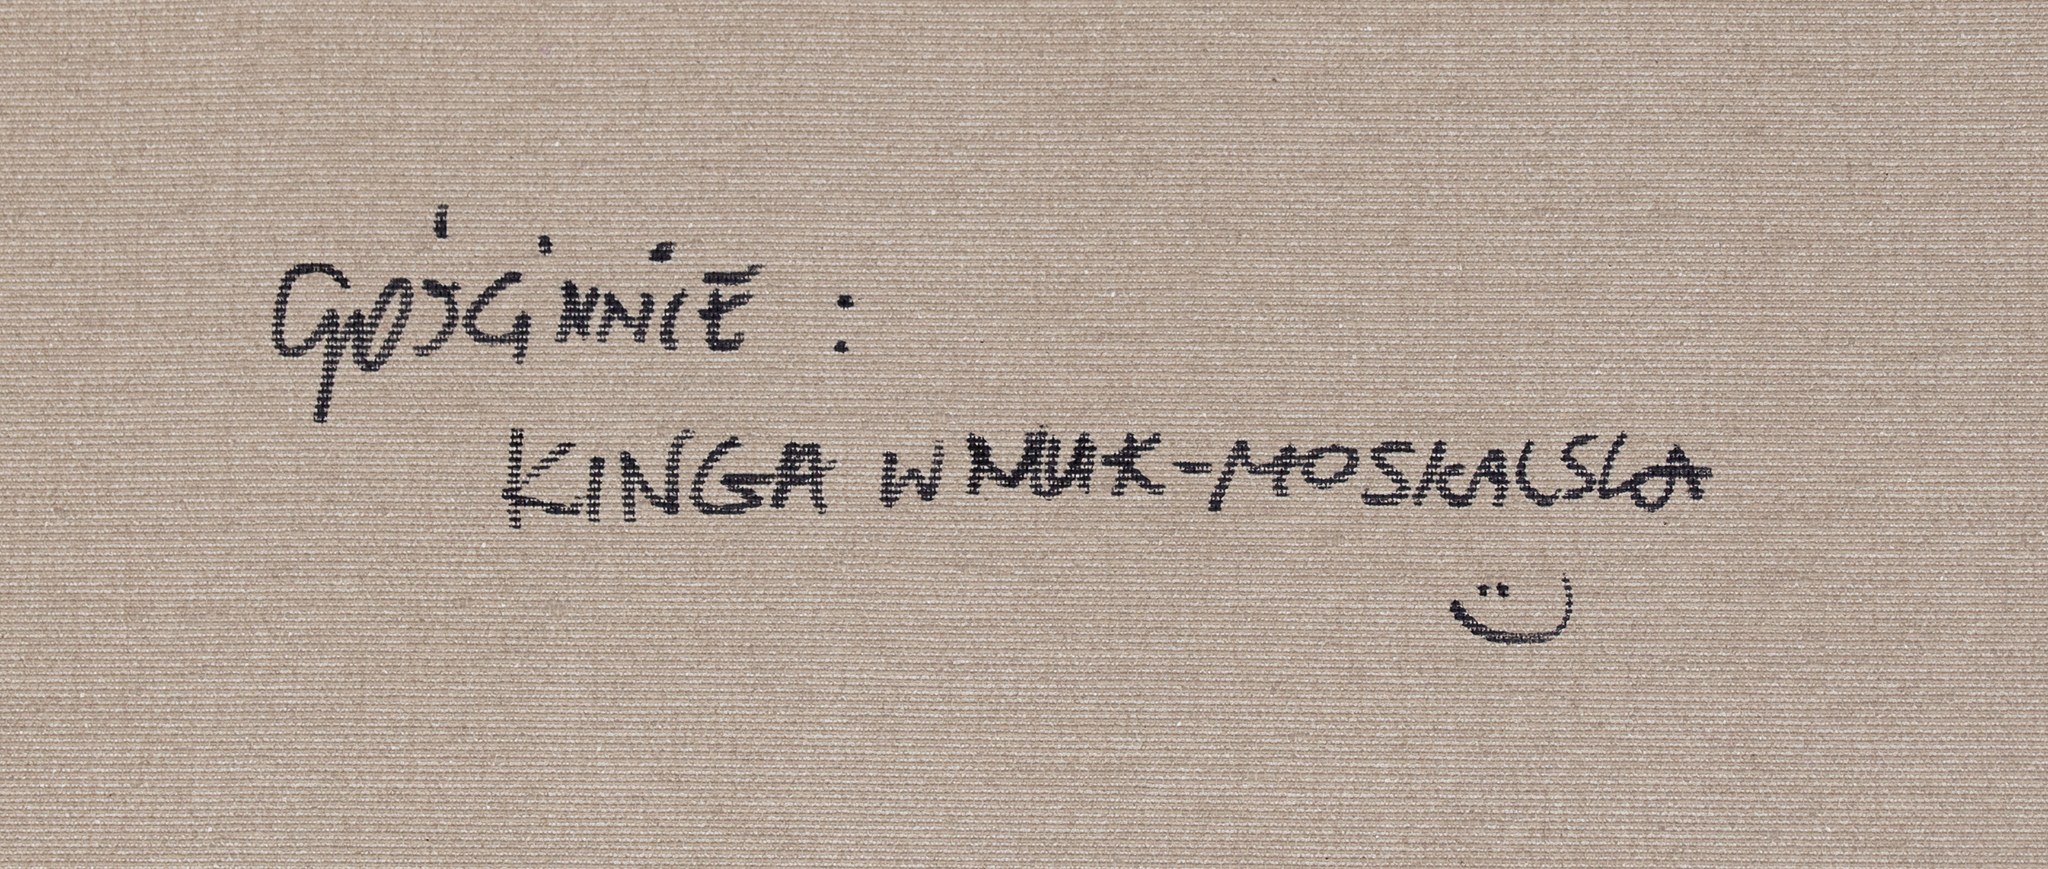 GOŚCiNNiE :
KINGA WNUK-MOSKALSKA